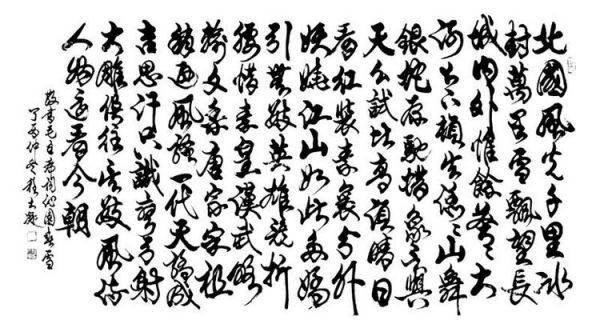 北國風光千里冰
封萬里雪飄望長
城内外惟餘莽〻大
河上下頓失滔〻山舞
銀蛇原馳蜡象欲與
天公試比高須晴日
看紅裝素裹分外
妖嬈江山如此多嬌
引無數英雄競折
腰惜秦皇漢武略
輸文采唐宗宋祖
稍遜風騷一代天驕成
吉思汗只識彎弓射
大雕俱往矣數風流
人物還看今朝
敬書毛主席詞沁園春雪
丁酉仲冬